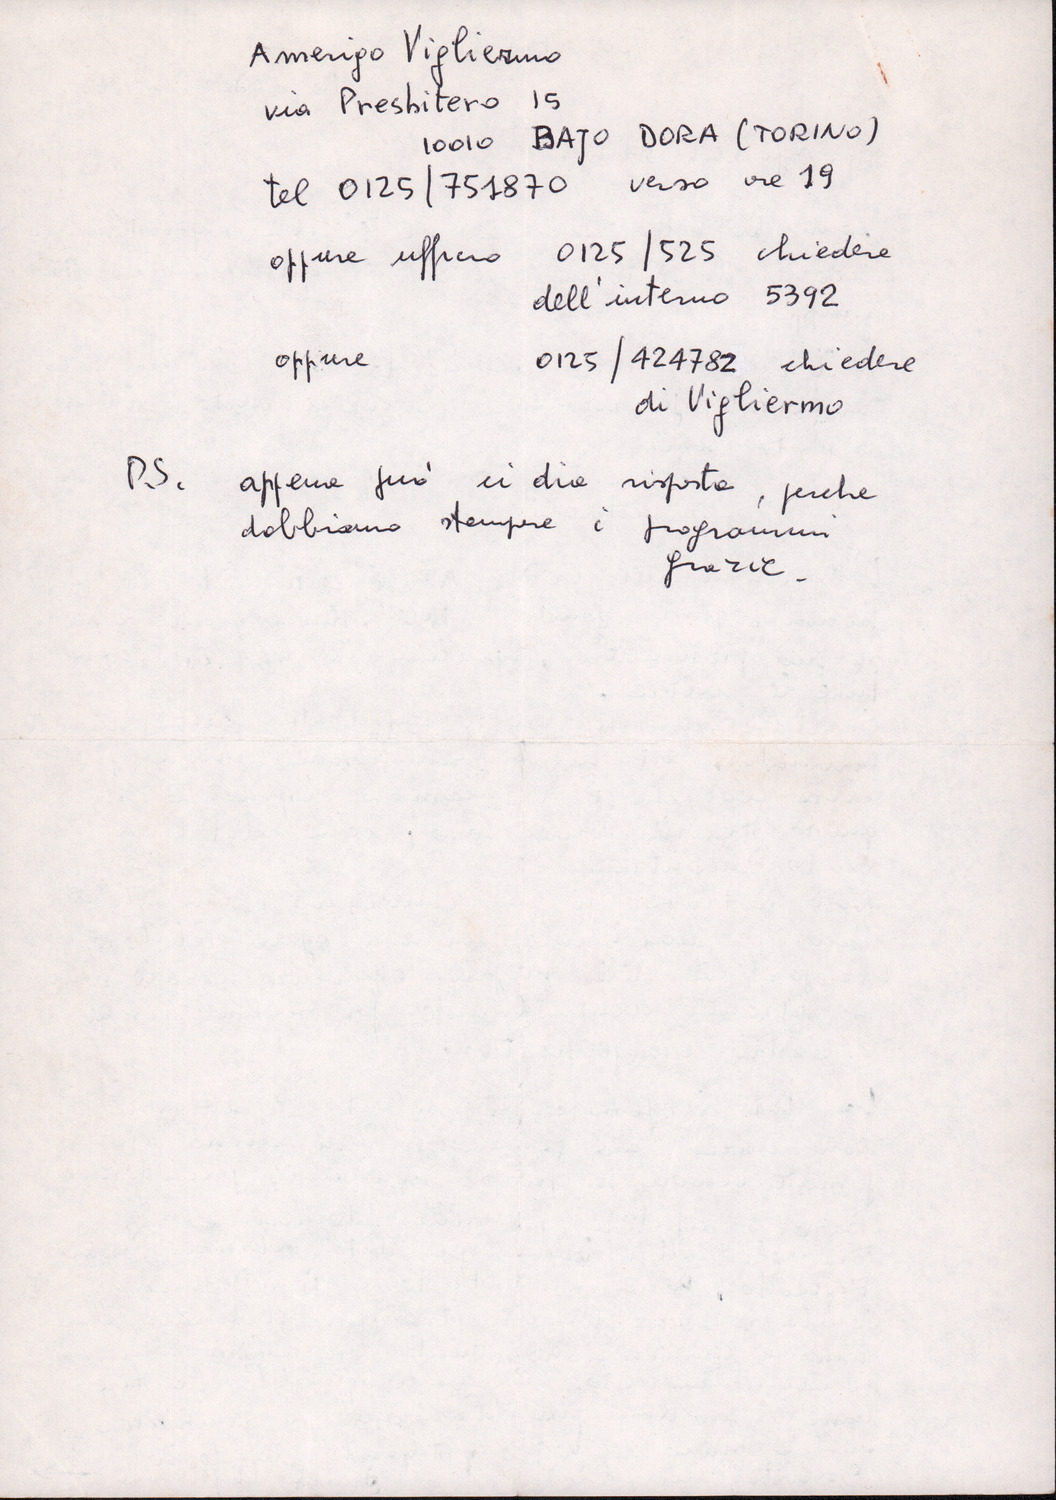 Amerigo Vigliermo
via Presbitero 15
10010 BAJO DORA (TORINO)
tel 0125/751870 verso ore 19
oppure ufficio 0125/525 chiedere
dell'interno 5392
oppure 0125/424782 chiedere
di Vigliermo
P.S. appena può ci dia risposta, perche
dobbiamo stampare i programmi
grazie.